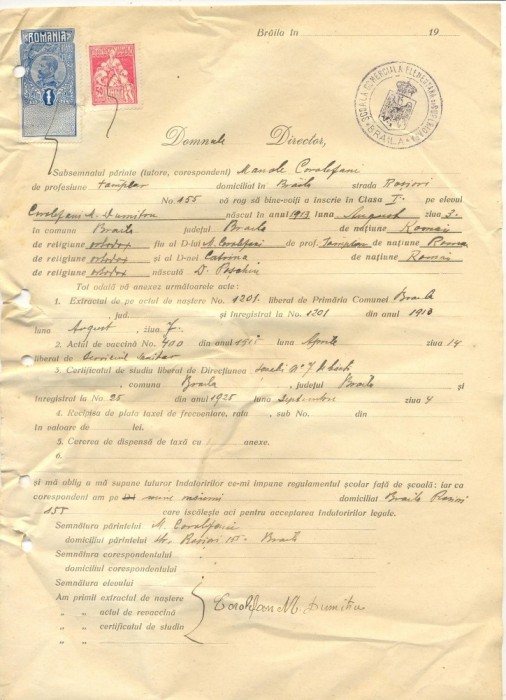 ROMANIA
1
Brăila în 19
ȘCOALA COMERCIALĂ ELEMENTARĂ
BRĂILA
Domnule Director,
Subsemnatul părinte (tutore, corespondent) Manole Coralefani
de profesiune tâmplar domiciliat în Brăila strada Roșiori
No. 155 vă rog să bine-voiți a înscrie în Clasa I. pe elevul
Coralefani M. Dumitru născut în anul 1913 luna August ziua 3.
în comuna Braila județul Braila de națiune Român
de religiune ortodox fiu al D-lui M. Coralefani de prof. Tamplar de națiune Roman
de religiune ortodox și al D-nei Catrina de națiune Român
de religiune ortodox născută D.
Tot odată vă anexez următoarele acte:
1. Extractul de pe actul de naștere No. 1201. liberat de Primăria Comunei Braila
, jud. și înregistrat la No. 1201 din anul 1913
luna August , ziua 7.
2. Actul de vaccină No. 400 din anul 1915 luna Aprilie ziua 14
liberat de Serviciul sanitar
3. Certificatul de studiu liberat de Direcțiunea
, comuna Braila , județul Braila și
înregistrat la No. 25 din anul 1925 luna Septembrie ziua 4
4. Recipisa de plata taxei de frecventare, rata , sub No. din
în valoare de lei.
5. Cererea de dispensă de taxă cu anexe.
6.
și mă oblig a mă supune tuturor îndatoririlor ce-mi impune regulamentul școlar față de școală: iar ca
corespondent am pe domiciliat Braila Rosiori
155 care iscălește aci pentru acceptarea îndatoririlor legale.
Semnătura părintelui M. Coralefani
domiciliul părintelui str. Rosiori 155. Braila
Semnătura corespondentului
domiciliul corespondentului
Semnătura elevului
Am primit extractul de naștere
„ „ actul de revaccină Coralefan M. Dumitru
„ „ certificatul de studiu
„ „